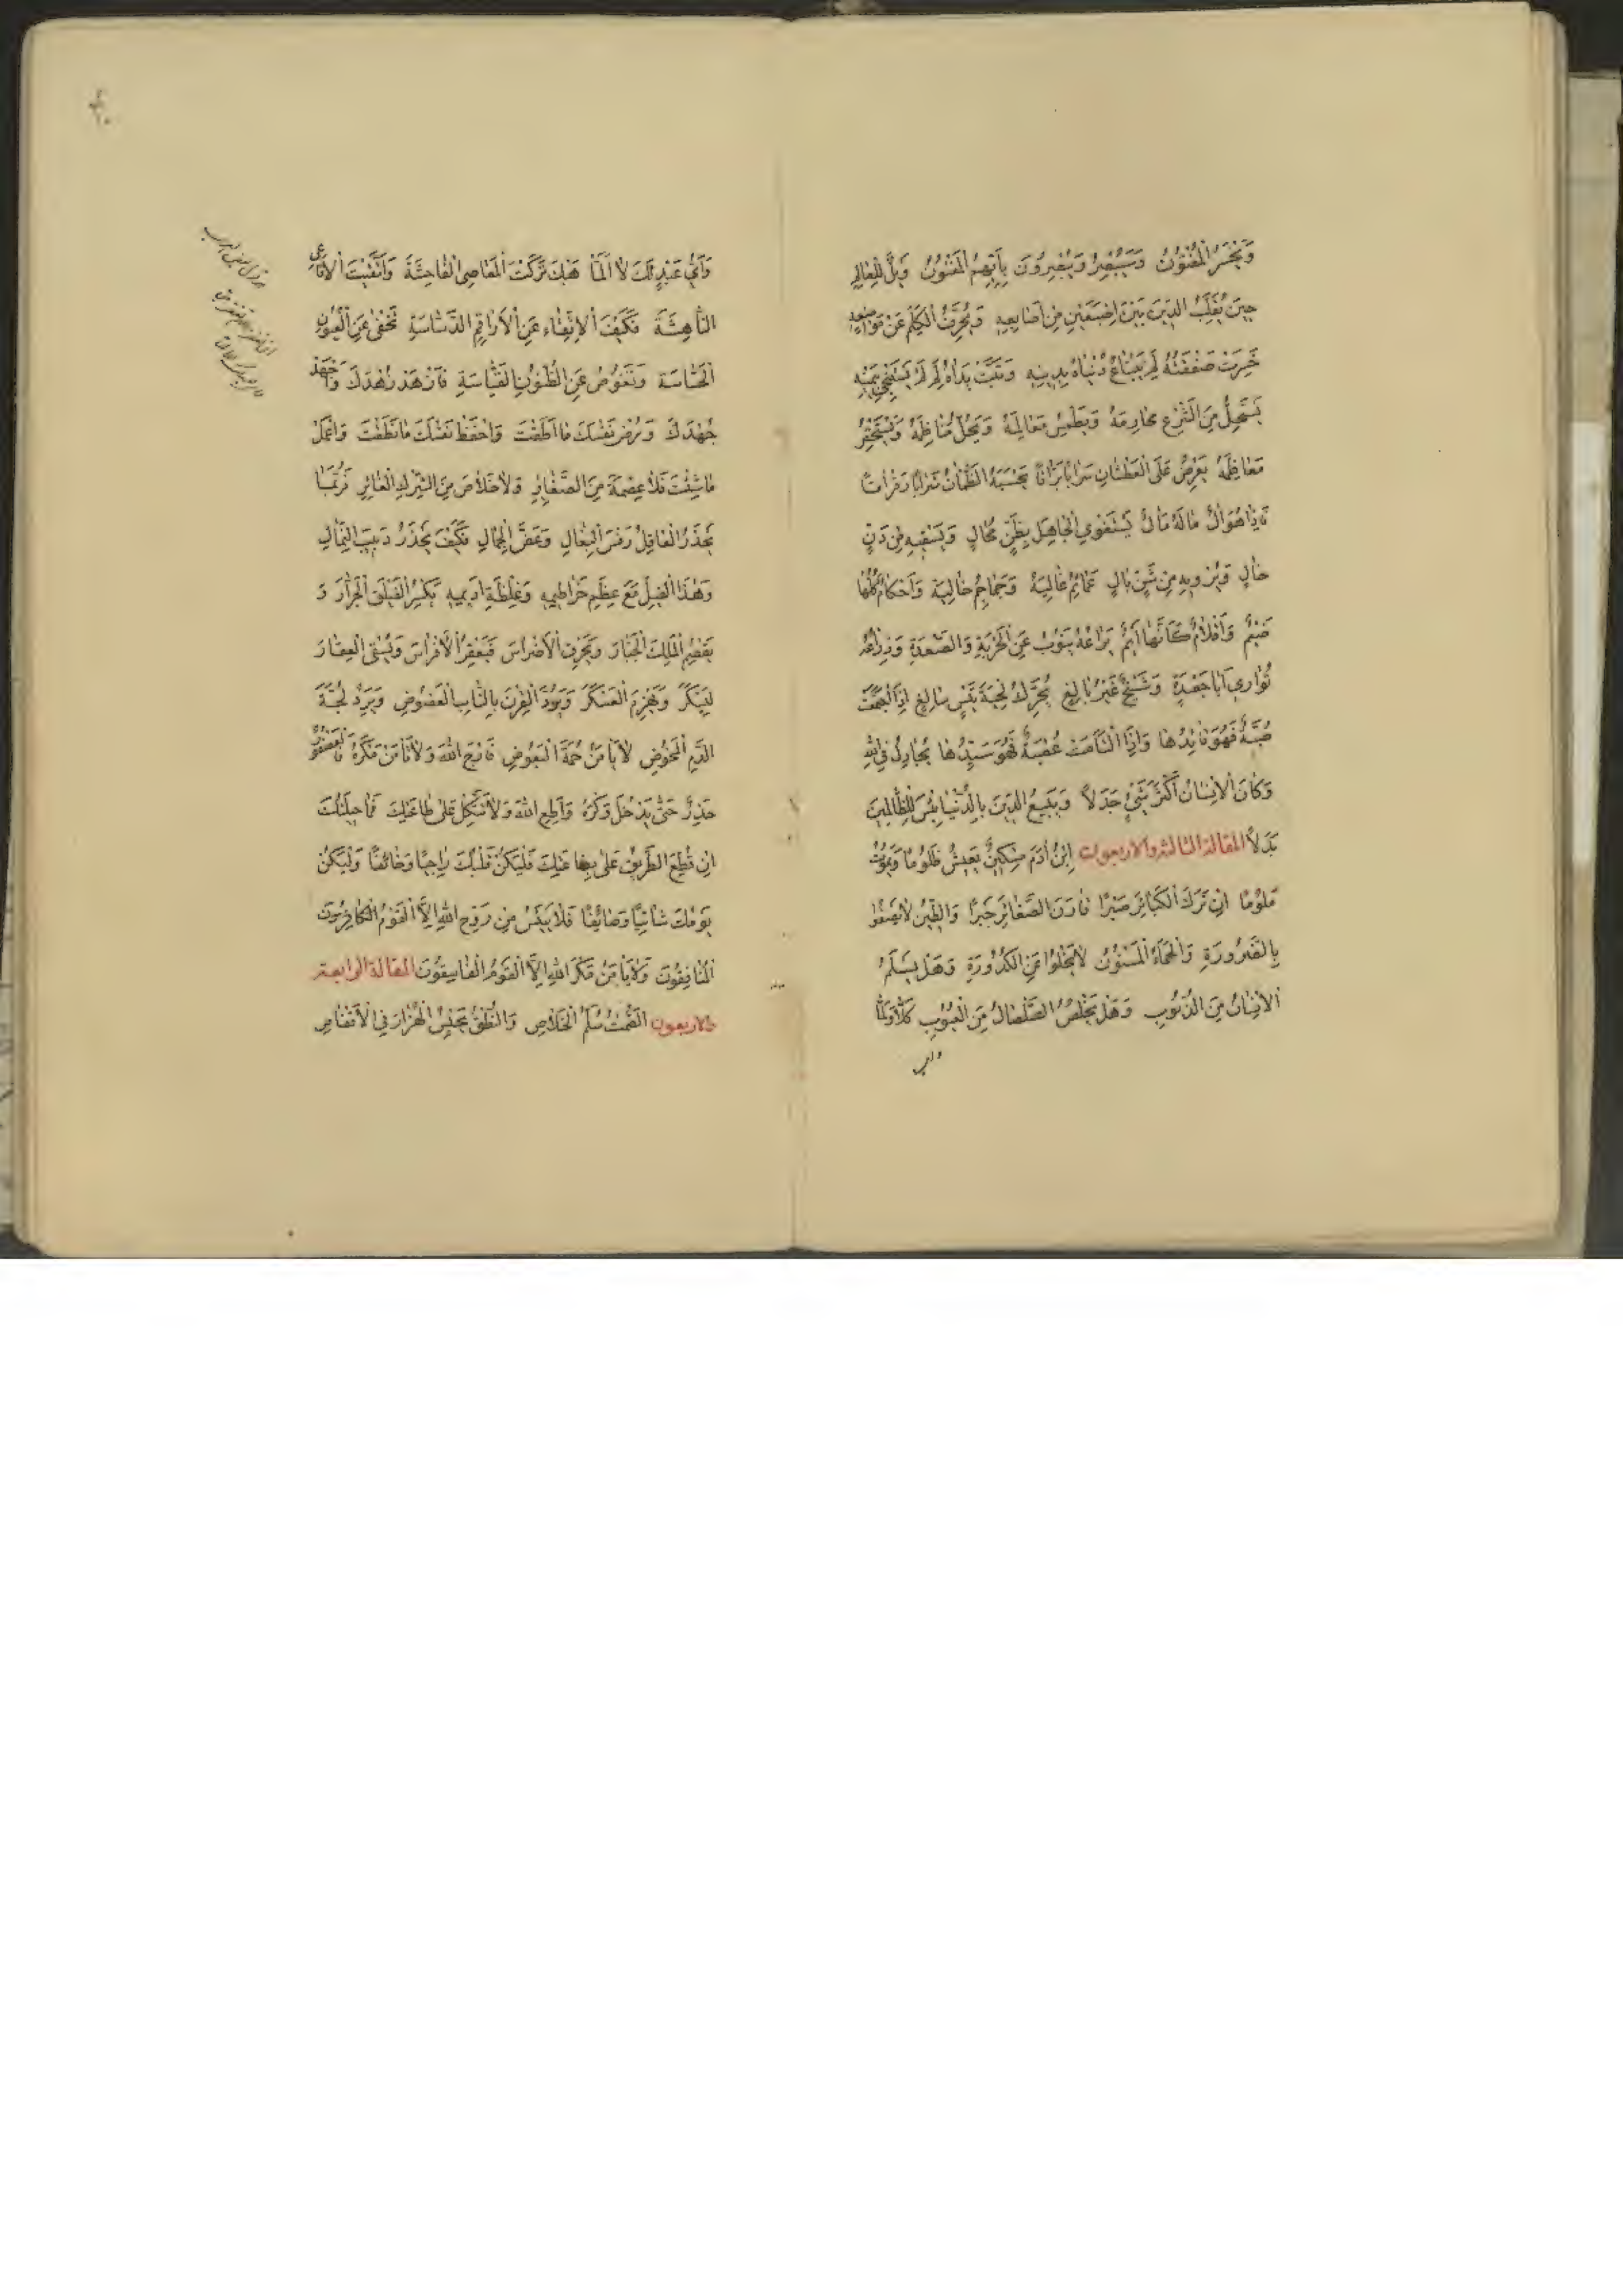 وَيَخْسَرُ الْمُفْتُونَ وَسَيُبْصِرُ وَيُبْصِرُونَ بِاَيِّهِمُ الْمَفْتُونُ وَيْلٌ لِلْعَالِمِ
حِينَ يُقَلِّبُ الدِّينَ بَيْنَ اِصْبَعَيْنِ مِنْ اَصَابِعِهِ وَيُحَرِّفُ الْكَلِمَ عَنْ مَوَاضِعِهِ
خَسِرَتْ صَفْقَتُهُ لِمَ يَبْتَاعُ دُنْيَاهُ بِدِينِهِ وَتَبَّتْ يَدَاهُ لِمَ
يَسْتَحِلُّ مِنَ الشَّرْعِ مَحَارِمَهُ وَيَطْمِسُ مَعَالِمَهُ وَيَحُلُّ مَنَاظِمَهُ وَيَسْتَحْقِرُ
مَعَاظِمَهُ يَعْرِضُ عَلَى الْعَطْشَانِ سَرَابًا بَرَّاقًا يَحْسَبُهُ الظَّمْاٰنُ شَرَابًا رَقْرَاقًا
مَالَهُ مَاٰلٌ يَسْتَغْوِي الْجَاهِلَ بِظَنٍّ مُحَالٍ وَيَسْقِيهِ مِنْ دَنٍّ
خَالٍ وَيُرْوِيهِ مِنْ شَنٍّ بَالٍ عَمَائِمُ عَالِيَةٌ وَجَمَاجِمُ خَالِيَةٌ وَاَحْكَامٌ كُلُّهَا
ضَيْمٌ وَاَقْلَامٌ كَاَنَّهَا اَيْمٌ يَرَاعُهُ يَنُوبُ عَنِ الْحَرْبَةِ وَالصَّعْدَةِ وَذِرَاعُهُ
تُوَارِي اَبَا جَعْدَةٍ وَشَيْخٌ غَيْرُ بَالِغٍ يُحَرِّكُ لِحْيَةَ تَيْسٍ سَالِغٍ اِذَا
ضُبَّةٌ فَهُوَ قَائِدُهَا وَاِذَا الْتَاَمَتْ عُصْبَةٌ فَهُوَ سَيِّدُهَا يُجَادِلُ فِي اللّٰهِ
وَكَانَ الْاِنْسَانُ اَكْثَرَ شَيْءٍ جَدَلًا وَيَبِيعُ الدِّينَ بِالدُّنْيَا بِئْسَ لِلظَّالِمِينَ
بَدَلًا المقالة الثالثة والاربعون اِبْنُ اٰدَمَ مِسْكِينٌ يَعِيشُ ظَلُومًا وَيَمُوتُ
مَلُومًا اِنْ تَرَكَ الْكَبَائِرَ صَبْرًا قَارَنَ الصَّغَائِرَ جَبْرًا وَالطِّينُ لَا يَصْفُو
بِالضَّرُورَةِ وَالْحَمَأُ الْمَسْنُونُ لَا يَخْلُوا عَنِ الْكُدُورَةِ وَهَلْ يَسْلَمُ
الْاِنْسَانُ مِنَ الذُّنُوبِ وَهَلْ يَخْلُصُ الصَّلْصَالُ مِنَ الْعُيُوبِ كَلَّا وَلَمَّا
واي
وَاَيُّ عَبْدٍ لَكَ لَا اَلَمَّا هَبْكَ تَرَكْتَ الْمَعَاصِيَ الْفَاحِشَةَ وَاتَّقَيْتَ الْاَفَاعِيَ
النَّاهِشَةَ فَكَيْفَ الْاِتِّقَاءُ عَنِ الْاَرَاقِمِ الدَّسَّاسَةِ تَخْفٰى عَنِ الْعُيُونِ
الْحَسَّاسَةِ وَتَغُوصُ عَنِ الظُّنُونِ الْقَيَّاسَةِ فَازْهَدْ زُهْدَكَ وَاجْهَدْ
جُهْدَكَ وَرُضْ نَفْسَكَ مَا اَطَقْتَ وَاحْفَظْ نَفْسَكَ وَاعْمَلْ
مَا شِئْتَ فَلَا عِصْمَةَ مِنَ الصَّغَائِرِ وَلَا خَلَاصَ مِنَ الشِّرْكِ الْغَائِرِ فَرُبَّمَا
يَحْذَرُ الْغَافِلُ رَفْسَ الْبِغَالِ وَعَضَّ الْجِمَالِ فَكَيْفَ يَحْذَرُ دَبِيبَ النِّمَالِ
وَهٰذَا الْفِيلُ مَعَ عِظَمِ خَرَاطِيمِهِ وَغِلْظَةِ اَدِيمِهِ يَكْسِرُ الْفَيْلَقَ الْجَرَّارَ وَ
يَقْصِمُ الْمَلِكَ الْجَبَّارَ وَيَحْرِقُ الْاَضْرَاسَ فَيَعْقِرُ الْاَفْرَاسَ وَيُسْقَى الْعِقَارَ
لِيَسْكَرَ وَيَهْزِمَ الْعَسْكَرَ وَيَرُدُّ الْقِرْنَ بِالنَّابِ الْعَضُوضِ وَيَرِدُ لُجَّةَ
الدَّمِ الْمَخُوضِ لَا يَأْمَنُ حُمَةَ الْبَعُوضِ فَارْجُ اللّٰهَ وَلَا تَأْمَنْ مَكْرَهُ فَالْعُصْفُورُ
حَذِرٌ حَتّٰى يَدْخُلَ وَكْرَهُ وَاَطِعِ اللّٰهَ وَلَا تَتَّكِلْ عَلٰى طَاعَتِكَ فَمَا حِيلَتُكَ
اِنْ قُطِعَ الطَّرِيقُ عَلٰى بِضَاعَتِكَ فَلْيَكُنْ قَلْبُكَ رَاجِيًا وَخَائِفًا وَلْيَكُنْ
يَوْمُكَ شَاتِيًا وَصَائِفًا فَلَا يَيْئَسُ مِنْ رَوْحِ اللّٰهِ اِلَّا الْقَوْمُ الْكَافِرُونَ
الْمُنَافِقُونَ وَلَا يَأْمَنُ مَكْرَ اللّٰهِ اِلَّا الْقَوْمُ الْفَاسِقُونَ المقالة الرابعة
والاربعون الصَّمْتُ سُلَّمُ الْخَلَاصِ وَالنُّطْقُ يَحْبِسُ الْهَزَارَ فِي الْاَقْفَاصِ